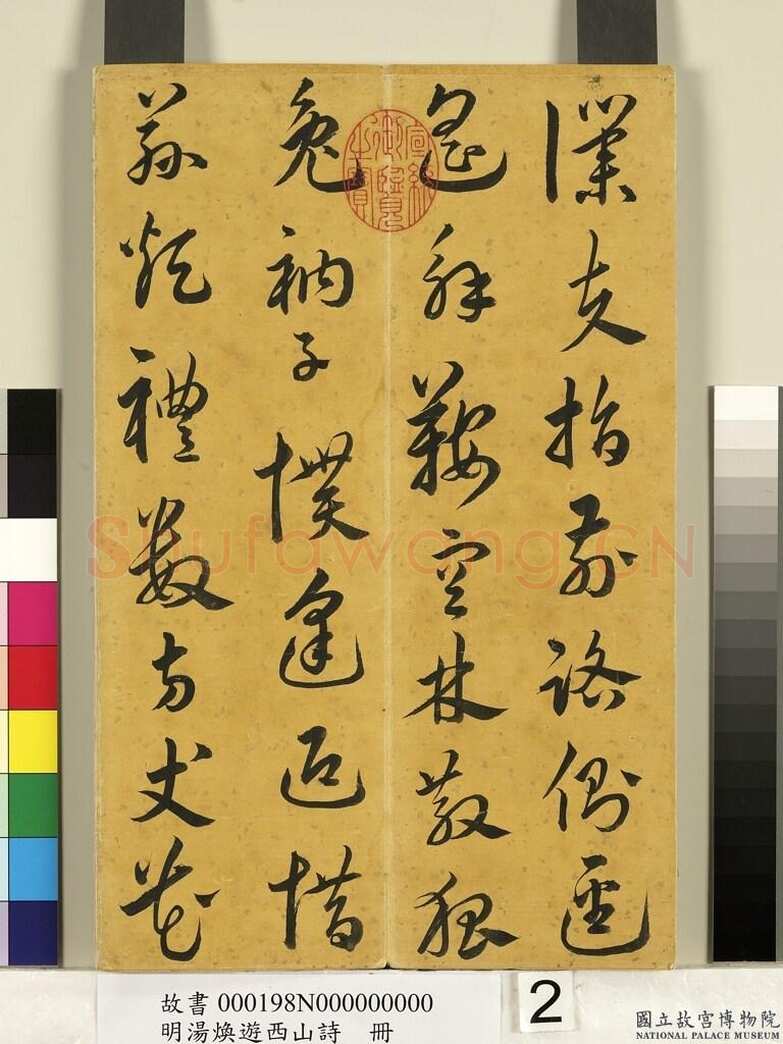 僕夫指前路側逕
遙解鞍空林散狼
兔衲子樸逢迎
蔬飱禮數方丈花
宣統御覽之寶
Shufawang.CN
故書 000198N000000000
明湯煥遊西山詩 冊
2
國立故宮博物院
NATIONAL PALACE MUSEUM